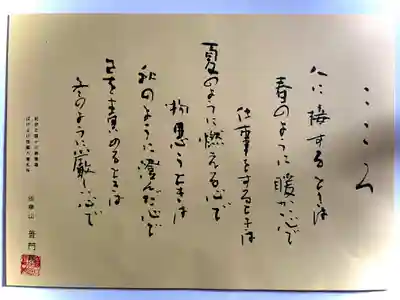 こころ
人に接するときは
春のように暖かい心で
仕事をするときは
夏のように燃える心で
物思うときは
秋のように澄んだ心で
己を責めるときは
冬のように厳しい心で
普門